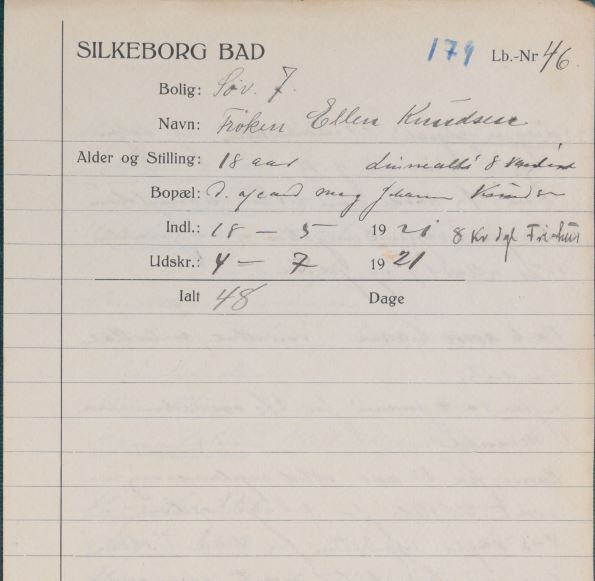 SILKEBORG BAD 179 Lb.-Nr 46.
Bolig: Söv. 7.
Navn: Fröken Ellen Knudsen
Alder og Stilling: 18 aar
Bopæl: D. af cand mag Johann Knudsen
Indl.: 18 - 5 1921 8 Kr dgl
Udskr.: 4 - 7 1921
Ialt 48 Dage